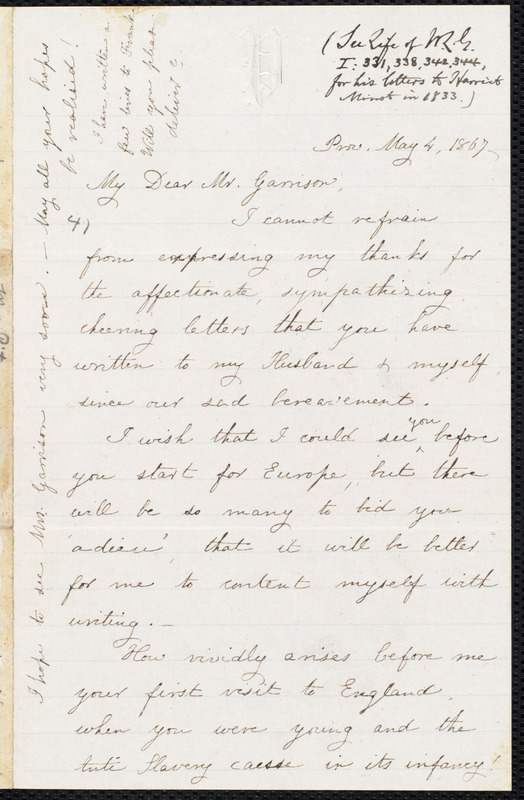 (See Life of W.L.G.
I: 331, 338, 342, 344,
for his letters to Harriet
Minot in 1833.)
Prov. May 4, 1867
My Dear Mr. Garrison,
I cannot refrain
from expressing my thanks for
the affectionate, sympathizing
cheering letters that you have
written to my Husband & myself,
since our sad bereavement.
I wish that I could see you before
you start for Europe, but there
will be so many to bid you
'adieu', that it will be better
for me to content myself with
writing. —
How vividly arises before me
your first visit to England,
when you were young and the
Anti Slavery cause in its infancy!
I hope to see Mrs. Garrison very soon. — May all your hopes
be realised!
I have written a
few lines to Frank.
Will you please